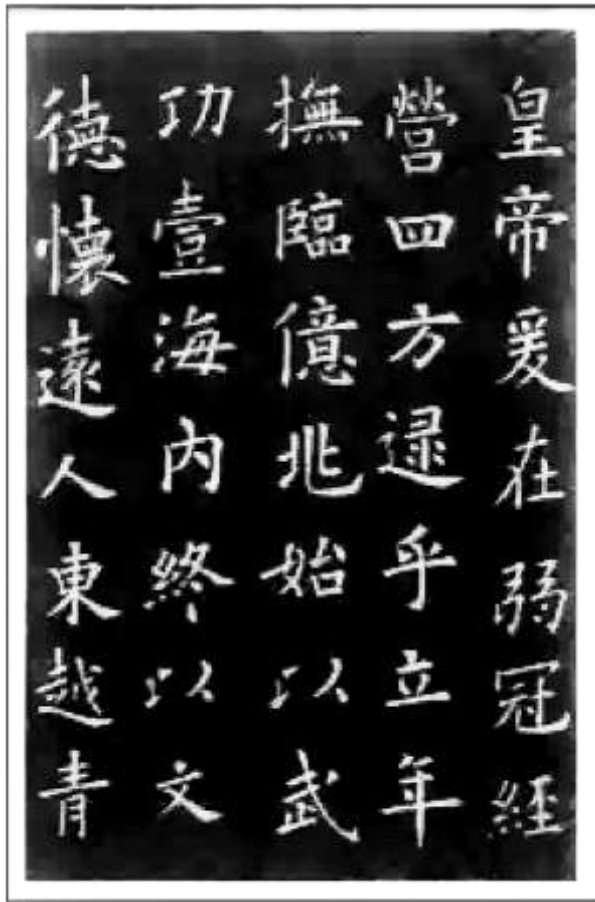 皇帝爰在弱冠經
營四方逮乎立年
撫臨億兆始以武
功壹海內終以文
德懷遠人東越青